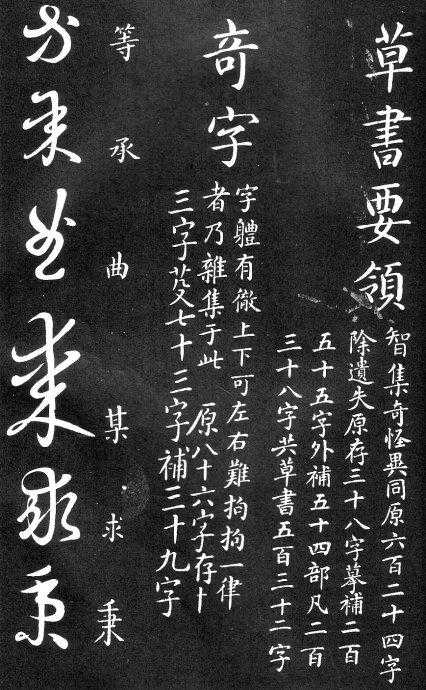 草書要領
智集奇怪異同原六百二十四字
除遺失原存三十八字摹補二百
五十五字外補五十四部凡二百
三十八字共草書五百三十二字
竒字
字體有徹上下可左右難拘拘一律
者乃雜集于此 原八十六字存十
三字芟七十三字補三十九字
等承曲某求秉
等承曲某求秉